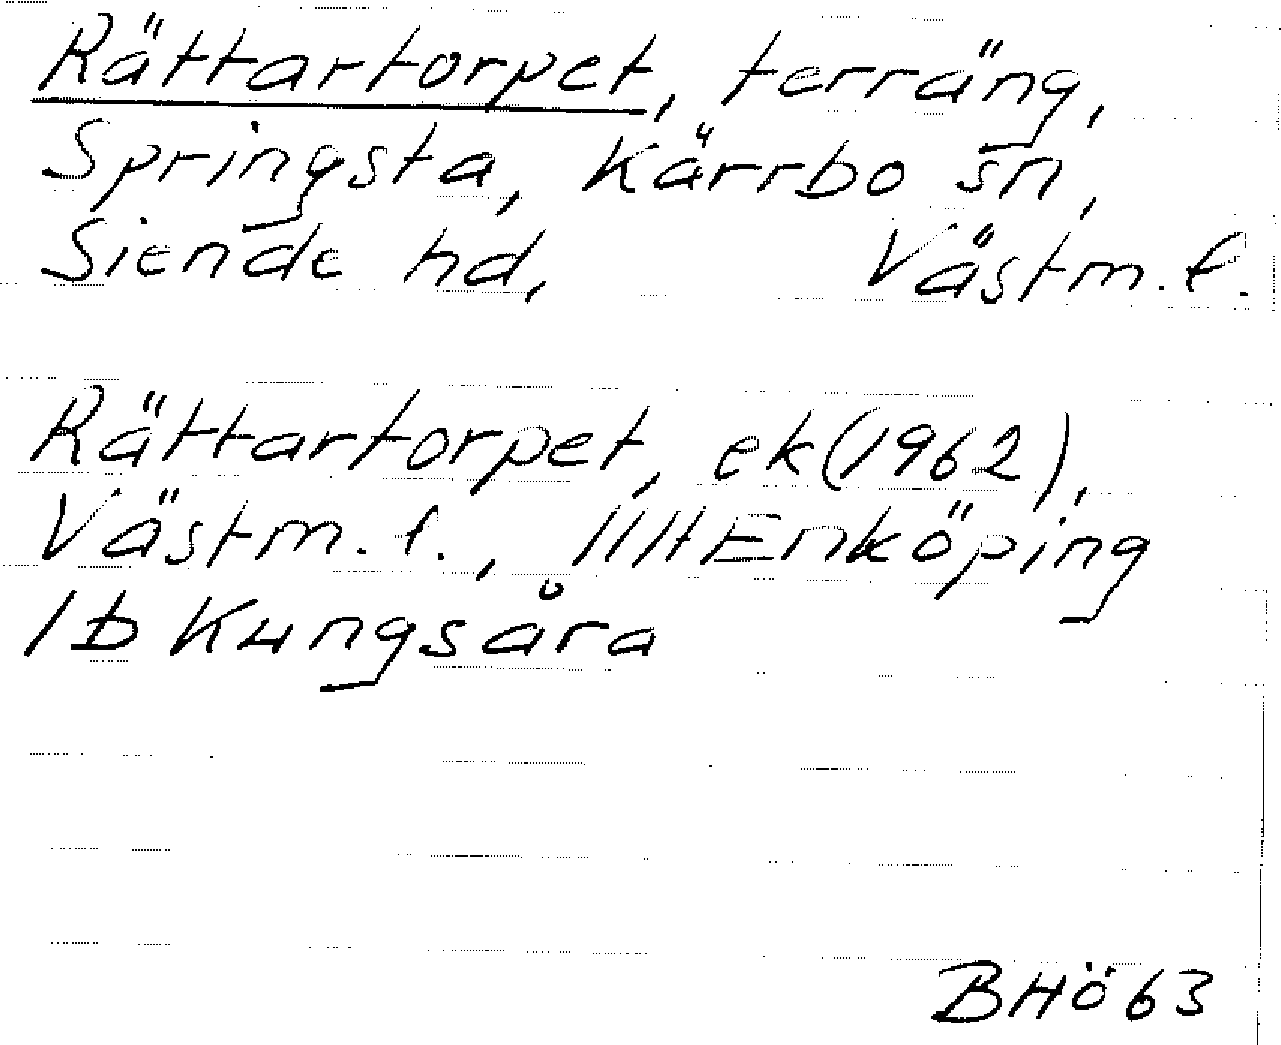 Rättartorpet, terräng,
Springsta, Kärrbo sn,
Siende hd, Västm. l.
Rättartorpet, ek(1962),
Västm. l., 11HEnköping
1b Kungsåra
BHö63